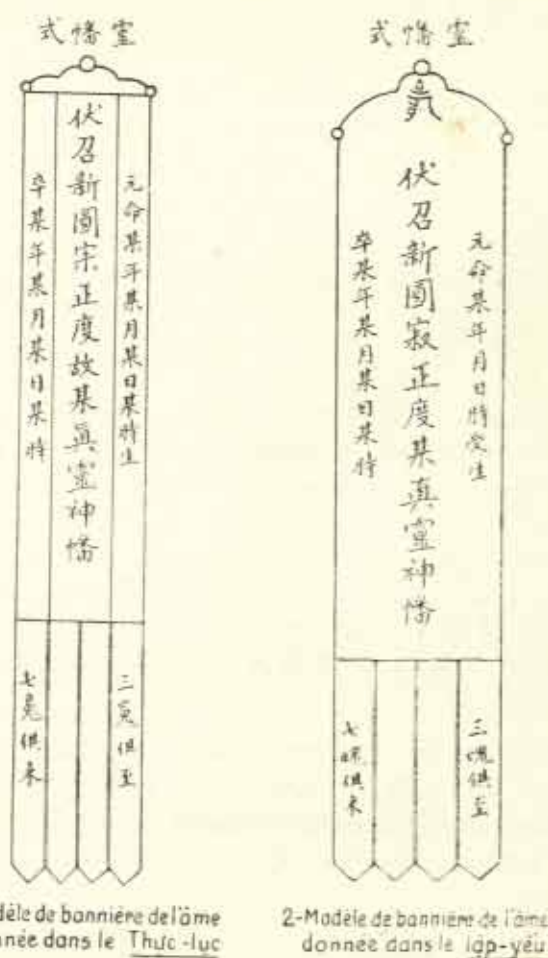 霊幡式
元命某年某月某日某時生
伏召新圓宗正度故某眞霊神幡
卒某年某月某日某時
三魂俱至
七魄俱来
dèle de bannière de l'âme
nnée dans le Thực-lục
霊幡式
元命某年月日時受生
伏召新圓寂正度某真霊神幡
卒某年某月某日某時
三魂俱至
七魄俱来
2-Modèle de bannière de l'âme
donnée dans le lập-yếu